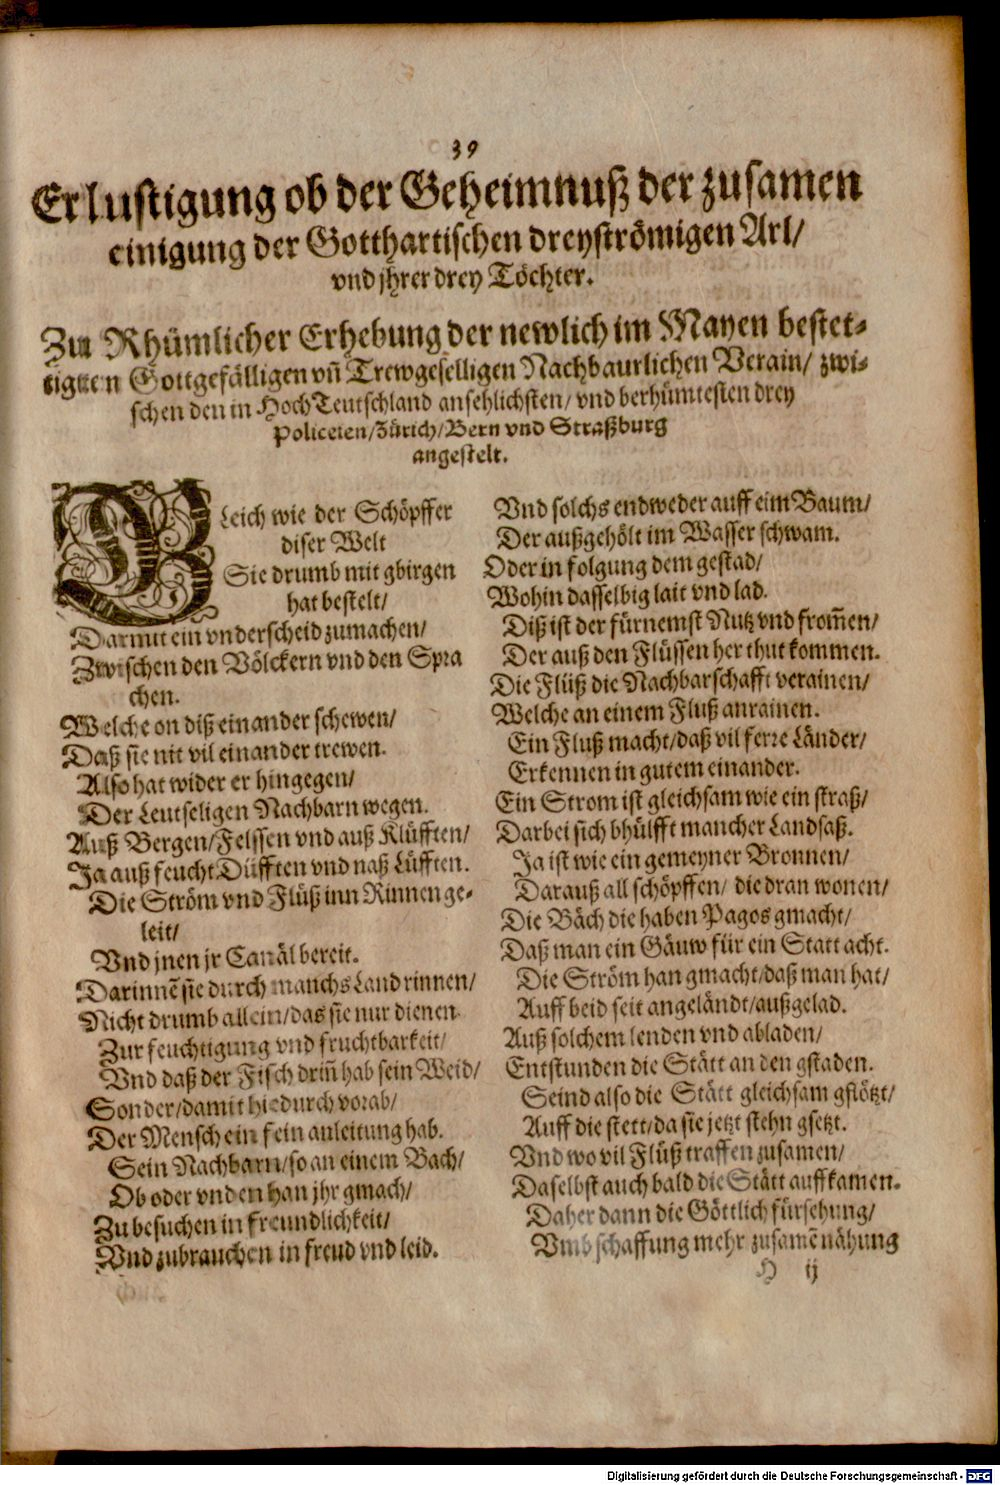 39
Erlustigung ob der Geheimnuß der zusamen
einigung der Gotthartischen dreyströmigen Arl/
vnd jhrer drey Töchter.
Zu Rhümlicher Erhebung der newlich im Mayen bestet-
tigten Gottgefälligen vñ Trewgeselligen Nachbaurlichen Verain/ zwi-
schen den in HochTeutschland ansehlichsten/ vnd berhümtesten drey
Policeien/Zürich/Bern vnd Straßburg
angestelt.
GLeich wie der Schöpffer
diser Welt
Sie drumb mit gbirgen
hat bestelt/
Darmit ein vnderscheid zumachen/
Zwischen den Völckern vnd den Spra
chen.
Welche on diß einander schewen/
Daß sie nit vil einander trewen.
Also hat wider er hingegen/
Der Leutseligen Nachbarn wegen.
Auß Bergen/Felssen vnd auß Klüfften/
Ja auß feucht Düfften vnd naß Lüfften.
Die Ström vnd Flüß inn Rinnen ge-
leit/
Vnd jnen jr Canäl bereit.
Darinnẽ sie durch manchs Land rinnen/
Nicht drumb allein/das sie nur dienen
Zur feuchtigung vnd fruchtbarkeit/
Vnd daß der Fisch driñ hab sein Weid/
Sonder/damit hiedurch vorab/
Der Mensch ein fein anleitung hab.
Sein Nachbarn/so an einem Bach/
Ob oder vnden han jhr gmach/
Zu besuchen in freundlichkeit/
Vnd zubrauchen in freud vnd leid.
Vnd solchs endweder auff eim Baum/
Der außgehölt im Wasser schwam.
Oder in folgung dem gestad/
Wohin dasselbig lait vnd lad.
Diß ist der fürnemst Nutz vnd from̃en/
Der auß den Flüssen her thut kommen.
Die Flüß die Nachbarschafft verainen/
Welche an einem Fluß anrainen.
Ein Fluß macht/daß vil ferre Länder/
Erkennen in gutem einander.
Ein Strom ist gleichsam wie ein straß/
Darbei sich bhülfft mancher Landsaß.
Ja ist wie ein gemeyner Bronnen/
Darauß all schöpffen/ die dran wonen/
Die Bäch die haben Pagos gmacht/
Daß man ein Gäuw für ein Statt acht.
Die Ström han gmacht/daß man hat/
Auff beid seit angeländt/außgelad.
Auß solchem lenden vnd abladen/
Entstunden die Stätt an den gstaden.
Seind also die Stätt gleichsam gflötzt/
Auff die stett/da sie jetzt stehn gsetzt.
Vnd wo vil Flüß traffen zusamen/
Daselbst auch bald die Stätt auffkamen.
Daher dann die Göttlich fürsehung/
Vmb schaffung mehr zusamẽnähung
H ij
Digitalisierung gefördert durch die Deutsche Forschungsgemeinschaft - DFG